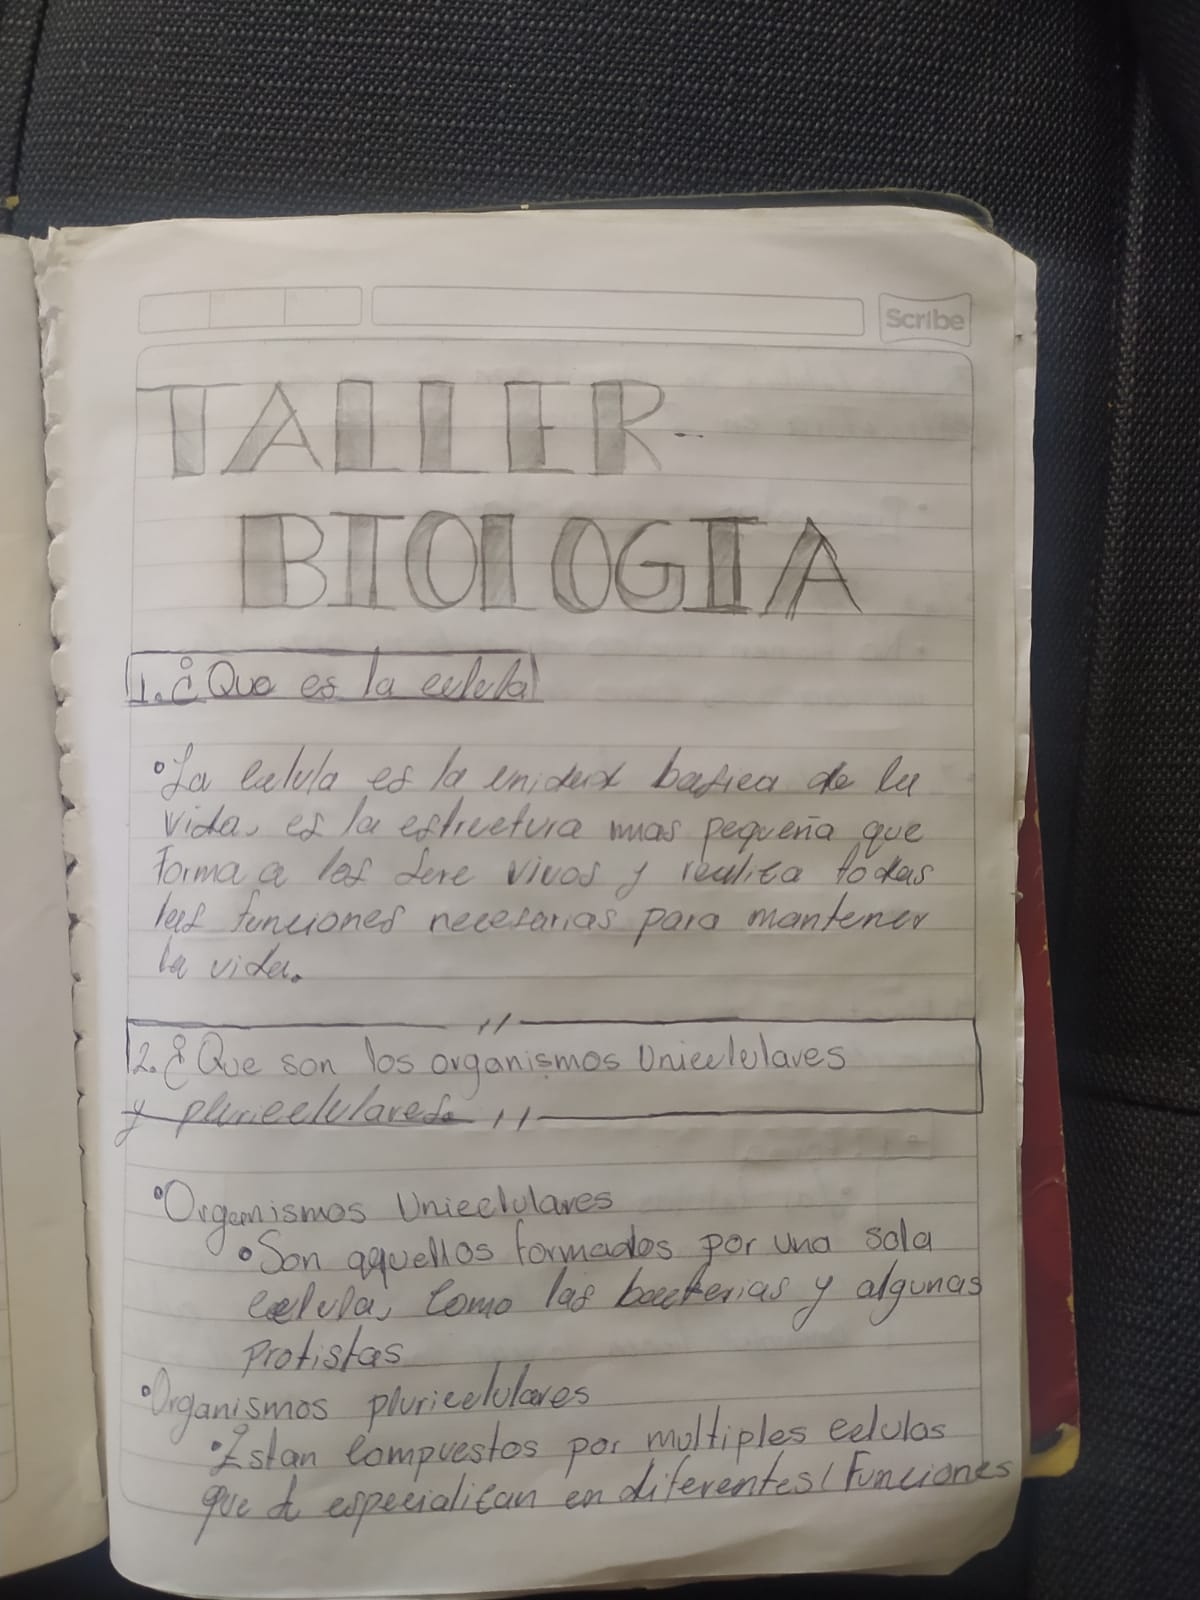 Scribe
TALLER
BIOLOGIA
1. ¿Que es la celula
La celula es la unidad basica de la
vida, es la estructura mas pequeña que
forma a los sere vivos y realiza todas
las funciones necesarias para mantener
la vida.
2. ¿Que son los organismos Unicelulares
y pluricelulares.
Organismos Unicelulares
Son aquellos formados por una sola
celula, como las bacterias y algunas
Protistas
Organismos pluricelulares
Estan compuestos por multiples celulas
que especializan en diferentes funciones